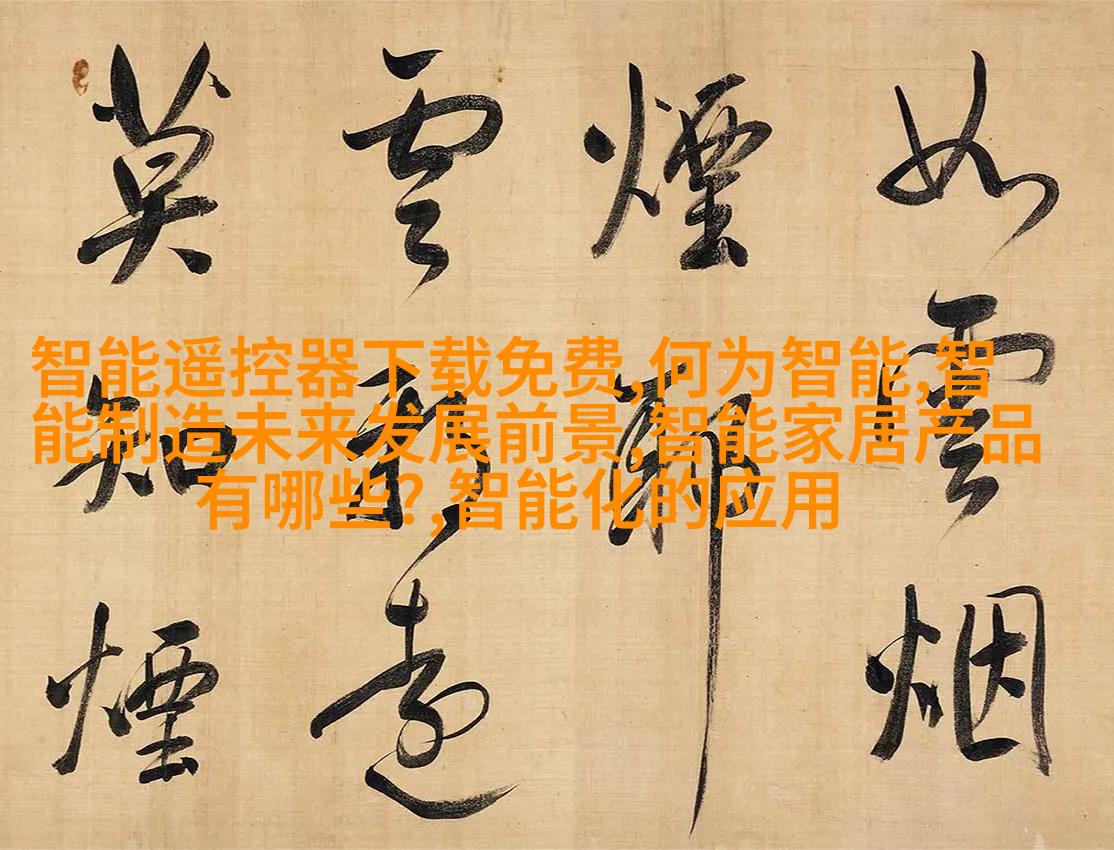 智能遥控器下载免费,何为智能,智
能制造未来发展前景,智能家居产品
有哪些?,智能化的应用
如雲烟
煙
雲遠
莫知煙